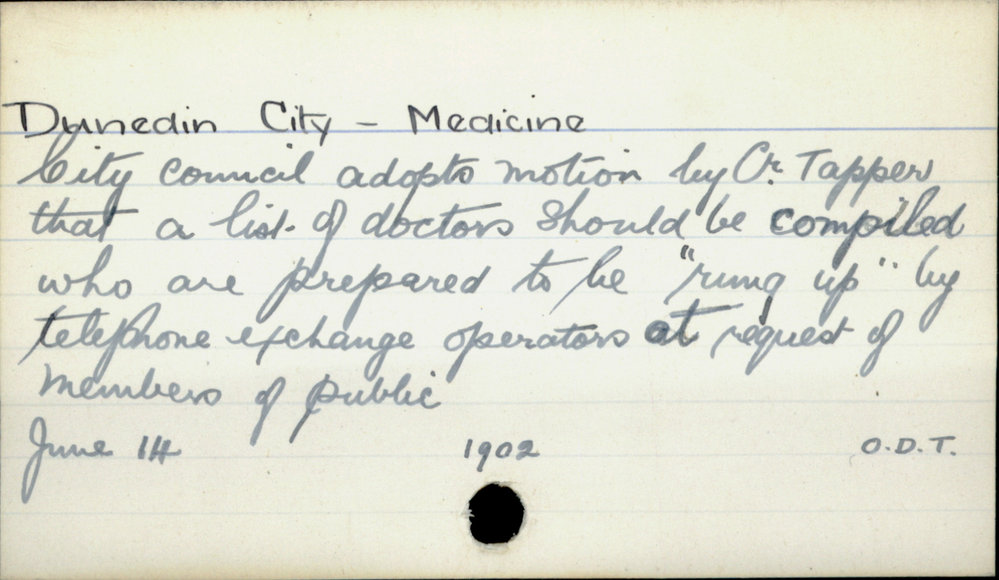 Dunedin City - Medicine
City council adopts motion by Cr. Tapper
that a list of doctors should be compiled
who are prepared to be "rung up" by
telephone exchange operators at request of
members of public
June 14 1902 O.D.T.